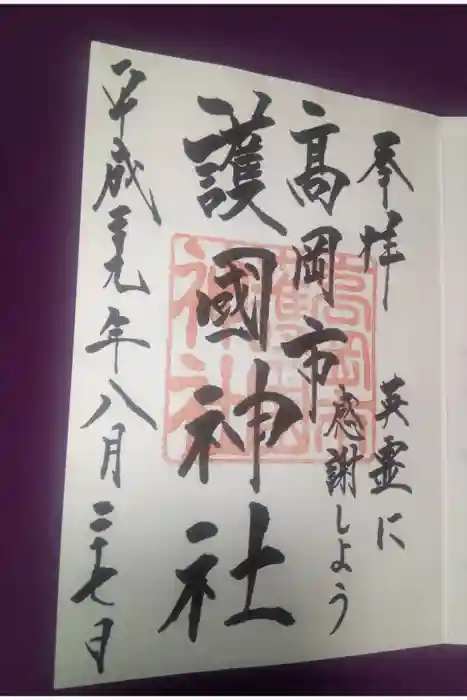 奉拝
英霊に
感謝しよう
高岡市
護國神社
平成二十九年八月二十七日